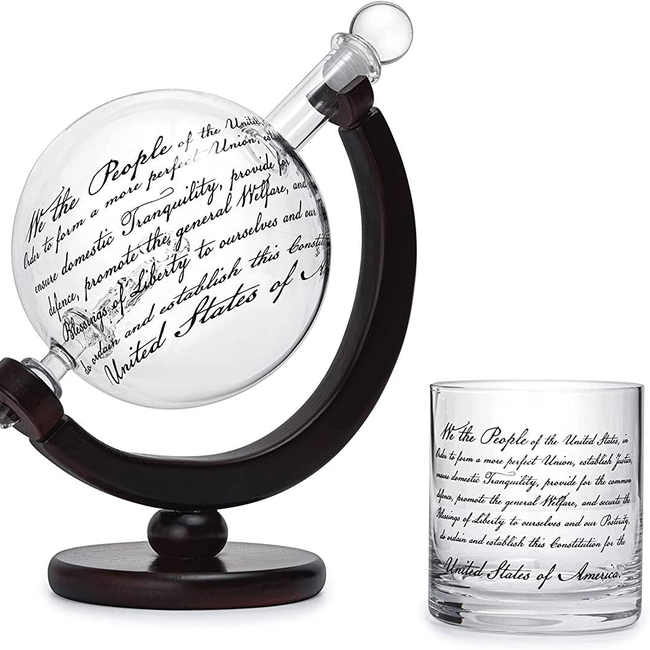 We the People of the United
Order to form a more perfect Union,
ensure domestic Tranquility, provide for
defence, promote the general Welfare, and
Blessings of Liberty to ourselves and our
do ordain and establish this
United States of
We the People of the United States, in
Order to form a more perfect Union, establish Justice,
ensure domestic Tranquility, provide for the common
defence, promote the general Welfare, and secure the
Blessings of Liberty to ourselves and our Posterity,
do ordain and establish this Constitution for the
United States of America.